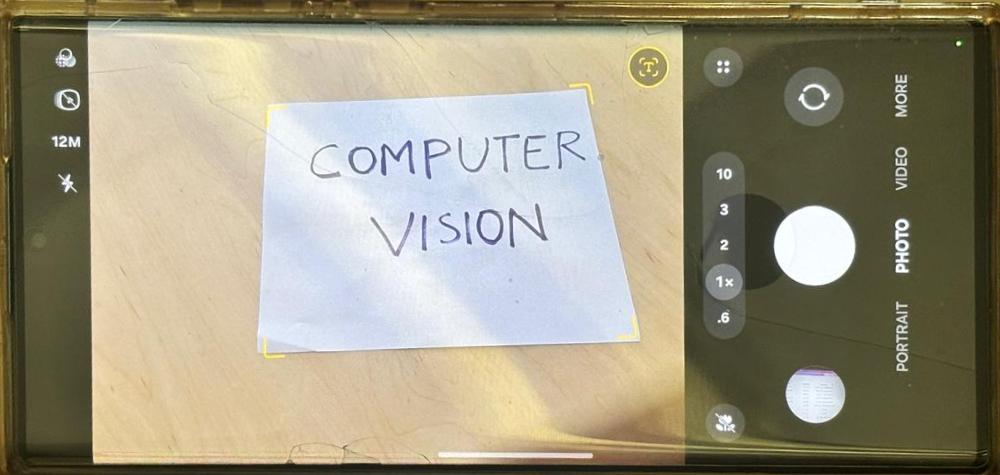 12M
COMPUTER
VISION
10
3
2
1×
.6
MORE
VIDEO
PHOTO
PORTRAIT